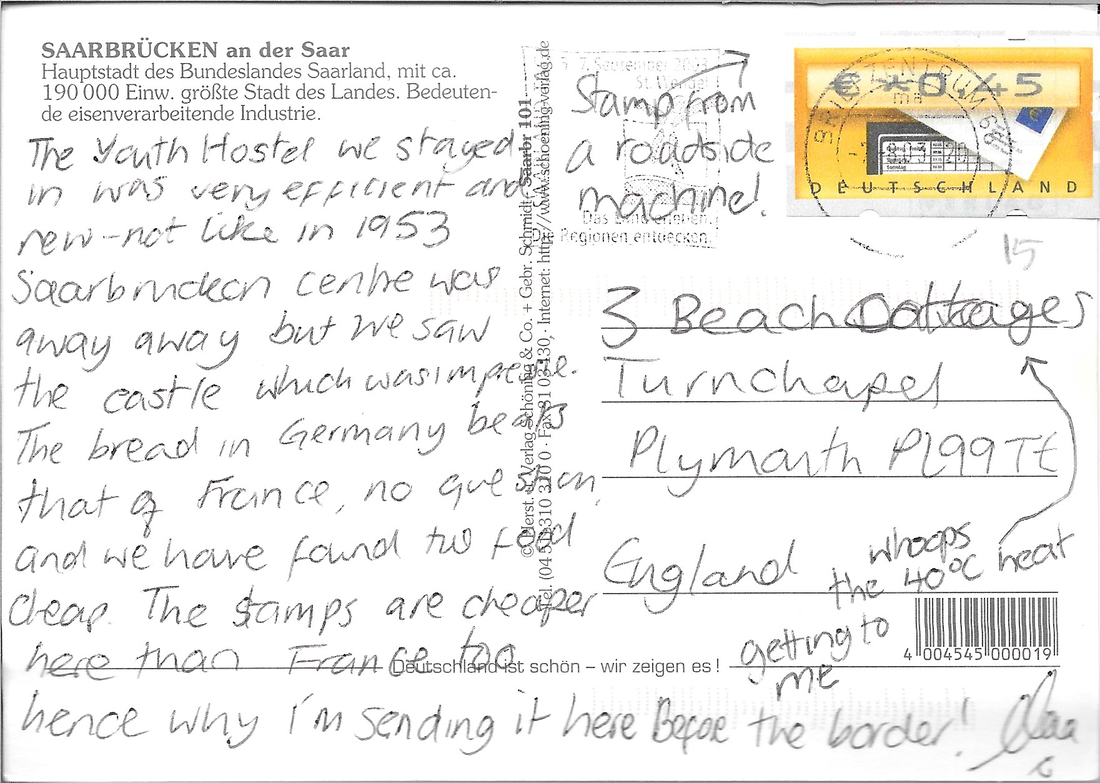 SAARBRÜCKEN an der Saar
Hauptstadt des Bundeslandes Saarland, mit ca.
190 000 Einw. größte Stadt des Landes. Bedeuten-
de eisenverarbeitende Industrie.
The Youth Hostel we stayed
in was very efficient and
new - not like in 1953
Saarbrucken centre was
away away but we saw
the castle which was
The bread in Germany beats
that of France, no question,
and we have found the food
cheap. The stamps are cheaper
here than France too
hence why I'm sending it here Before the border!
© Herst. u. Verlag Schöning & Co. + Gebr. Schmidt, Saarbr 101
Tel. (04 51) 310 310 0 · Fax 31 03 130, · Internet: http://www.schoening-verlag.de
7. September 2003
St. Wendel
Das Land erleben.
Die Regionen entdecken.
Stamp from
a roadside
machine!
€ **0,45
BRIEFZENTRUM 66
DEUTSCHLAND
15
3 Beach Cottages
Turnchapel
Plymouth PL99TE
England
whoops
the 40°C heat
getting to
me
4 004545 000019
Deutschland ist schön – wir zeigen es !